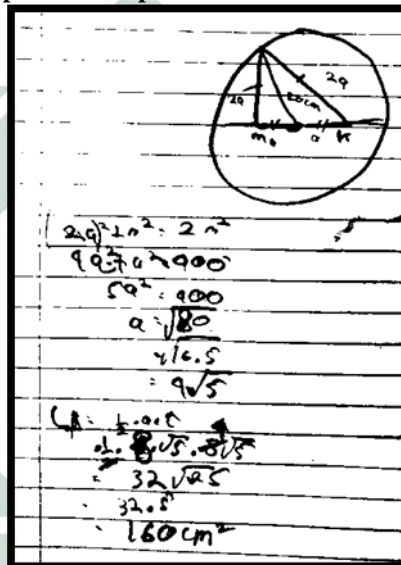 2a
2a
20cm
m a k
(2a)² + a² = 2 n²
4a² + a² = 400
5a² = 400
a = √80
√16.5
= 4√5
L = ½ . a . t
½ . 8√5 . 8√5
= 32√25
= 32.5
= 160 cm²